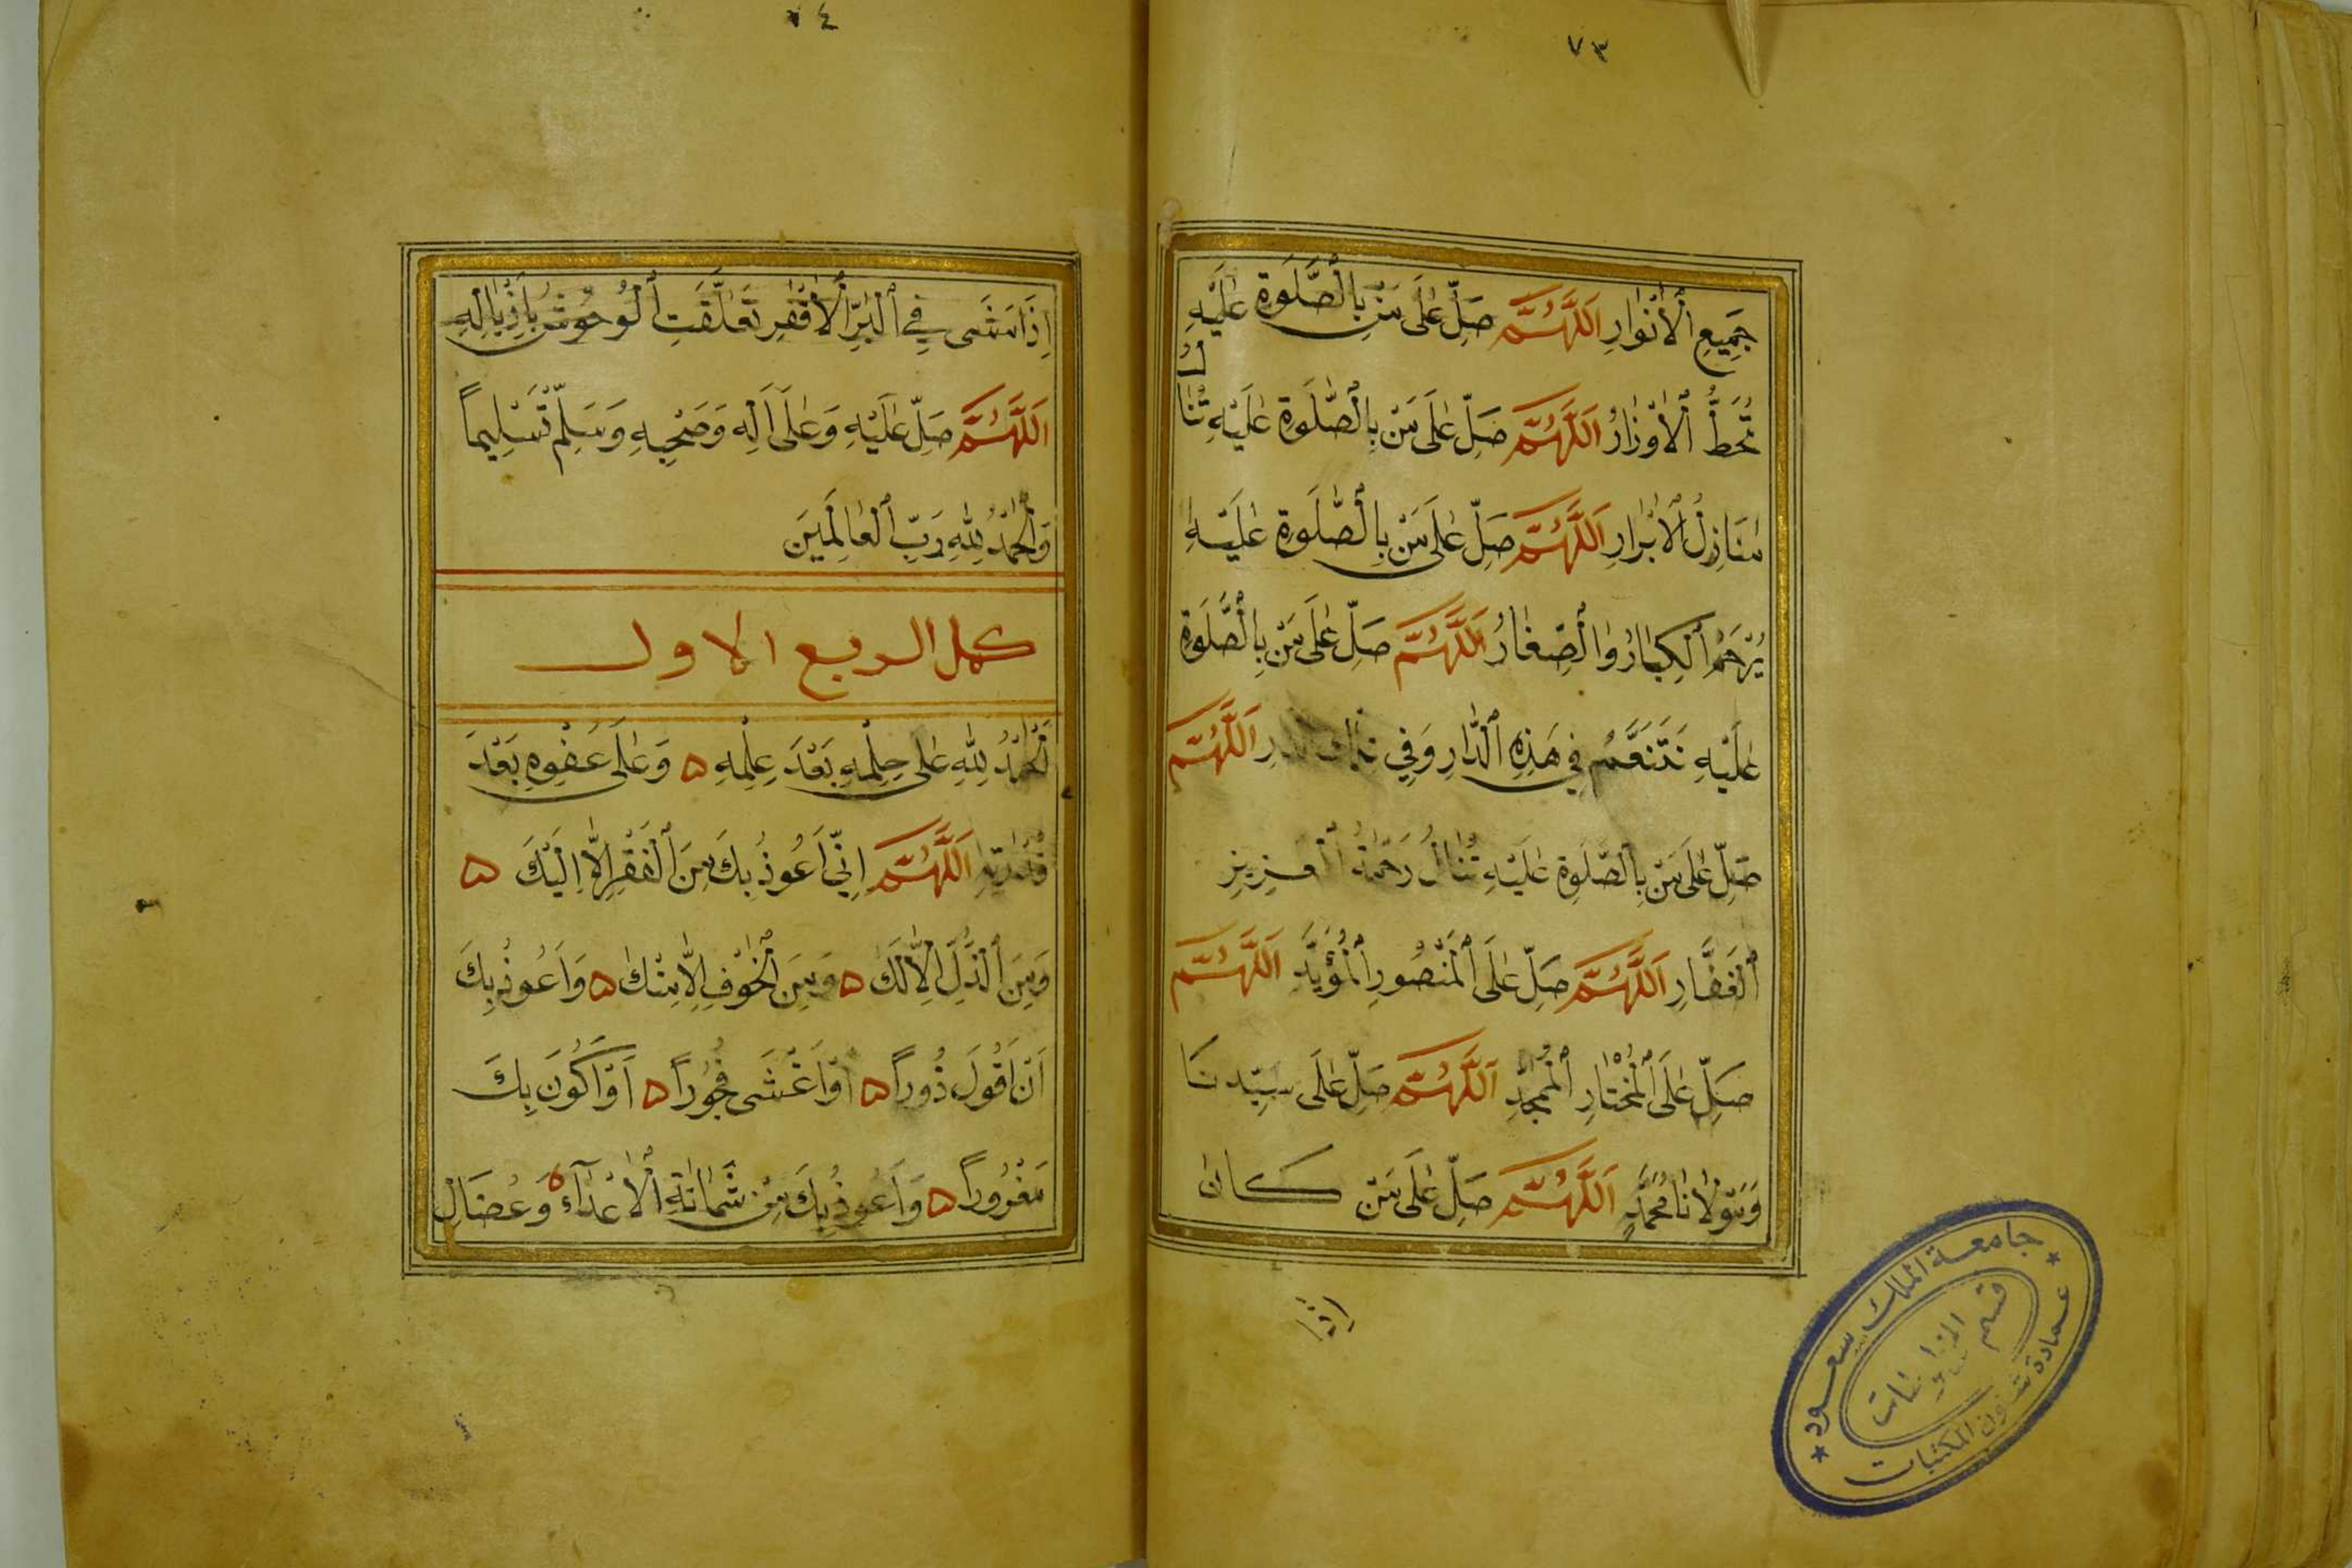 ٧٣
جَمِيعِ ٱلْأَنْوَارِ اَللَّهُمَّ صَلِّ عَلَى مَنْ بِالصَّلَوةِ عَلَيْهِ
تُحَطُّ ٱلْأَوْزَارُ اَللَّهُمَّ صَلِّ عَلَى مَنْ بِالصَّلَوةِ عَلَيْهِ تُنَالُ
مَنَازِلُ ٱلْأَبْرَارِ اَللَّهُمَّ صَلِّ عَلَى مَنْ بِالصَّلَوةِ عَلَيْهِ
يُرْحَمُ ٱلْكِبَارُ وَالصِّغَارُ اَللَّهُمَّ صَلِّ عَلَى مَنْ بِالصَّلَوةِ
عَلَيْهِ نَتَنَعَّمُ فِي هَذِهِ ٱلدَّارِ وَفِي تِلْكَ ٱلدَّارِ اَللَّهُمَّ
صَلِّ عَلَى مَنْ بِالصَّلَوةِ عَلَيْهِ تُنَالُ رَحْمَةُ ٱلْعَزِيزِ
ٱلْغَفَّارِ اَللَّهُمَّ صَلِّ عَلَى ٱلْمَنْصُورِ ٱلْمُؤَيَّدِ اَللَّهُمَّ
صَلِّ عَلَى ٱلْمُخْتَارِ ٱلْمُمَجَّدِ اَللَّهُمَّ صَلِّ عَلَى سَيِّدِنَا
وَمَوْلَانَا مُحَمَّدٍ اَللَّهُمَّ صَلِّ عَلَى مَنْ كَانَ
اِذَا
جامعة الملك سعود
قسم المخطوطات
عمادة شؤون المكتبات
٧٤
اِذَا مَشَى فِي ٱلْبَرِّ ٱلْأَقْفَرِ تَعَلَّقَتِ ٱلْوُحُوشُ بِاَذْيَالِهِ
اَللَّهُمَّ صَلِّ عَلَيْهِ وَعَلَى اَلِهِ وَصَحْبِهِ وَسَلِّمْ تَسْلِيماً
وَٱلْحَمْدُ لِلهِ رَبِّ ٱلْعَالَمِينَ
كمل الربع الاول
اَلْحَمْدُ لِلهِ عَلَى حِلْمِهِ بَعْدَ عِلْمِهِ ۵ وَعَلَى عَفْوِهِ بَعْدَ
قُدْرَتِهِ اَللَّهُمَّ اِنِّي اَعُوذُ بِكَ مِنَ ٱلْفَقْرِ اِلَّا اِلَيْكَ ۵
وَمِنَ ٱلذُّلِّ اِلَّا لَكَ ۵ وَمِنَ ٱلْخَوْفِ اِلَّا مِنْكَ ۵ وَاَعُوذُ بِكَ
اَنْ اَقُولَ ذُوراً ۵ اَوْ اَغْشَى فُجُوراً ۵ اَوْ اَكُونَ بِكَ
مَغْرُوراً ۵ وَاَعُوذُ بِكَ مِنْ شَمَاتَةِ ٱلْأَعْدَآءِ ۵ وَعُضَالِ